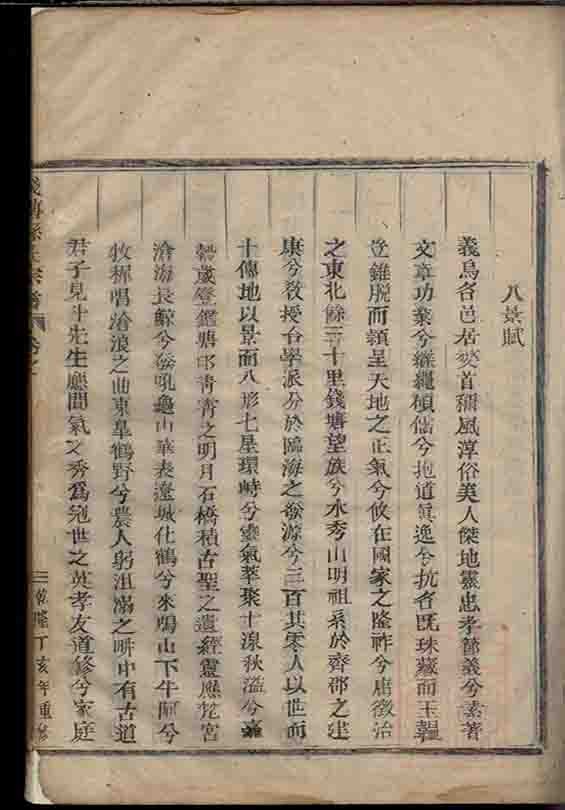 八景賦
義烏名邑居婺首稱風淳俗美人傑地靈忠孝節義兮素著
文章功業兮繼繩碩儒兮抱道真逸兮抗名既珠藏而玉韞
錐脫而穎呈天地之正氣兮攸在國家之隆祚兮屬徵治
之東北餘三十里錢塘望族兮水秀山明祖系於齊郡之建
康兮教授台學派分於臨海之發源兮三百其零人以世而
十傳地以景而八形七星環峙兮靈氣萃聚十湶秋溢兮
歲登鑑塘印青青之明月石橋積古聖之遺經靈應梵宮
滄海長鯨兮吼龜山華表遼城化鶴兮來鳴山下牛岡兮
牧稚唱滄浪之曲東皐鶴野兮農人躬沮溺之畊中有古道
君子見斗先生應間氣之秀為冠世之英孝友道修兮家庭
孫氏宗譜
乾隆丁亥年重修